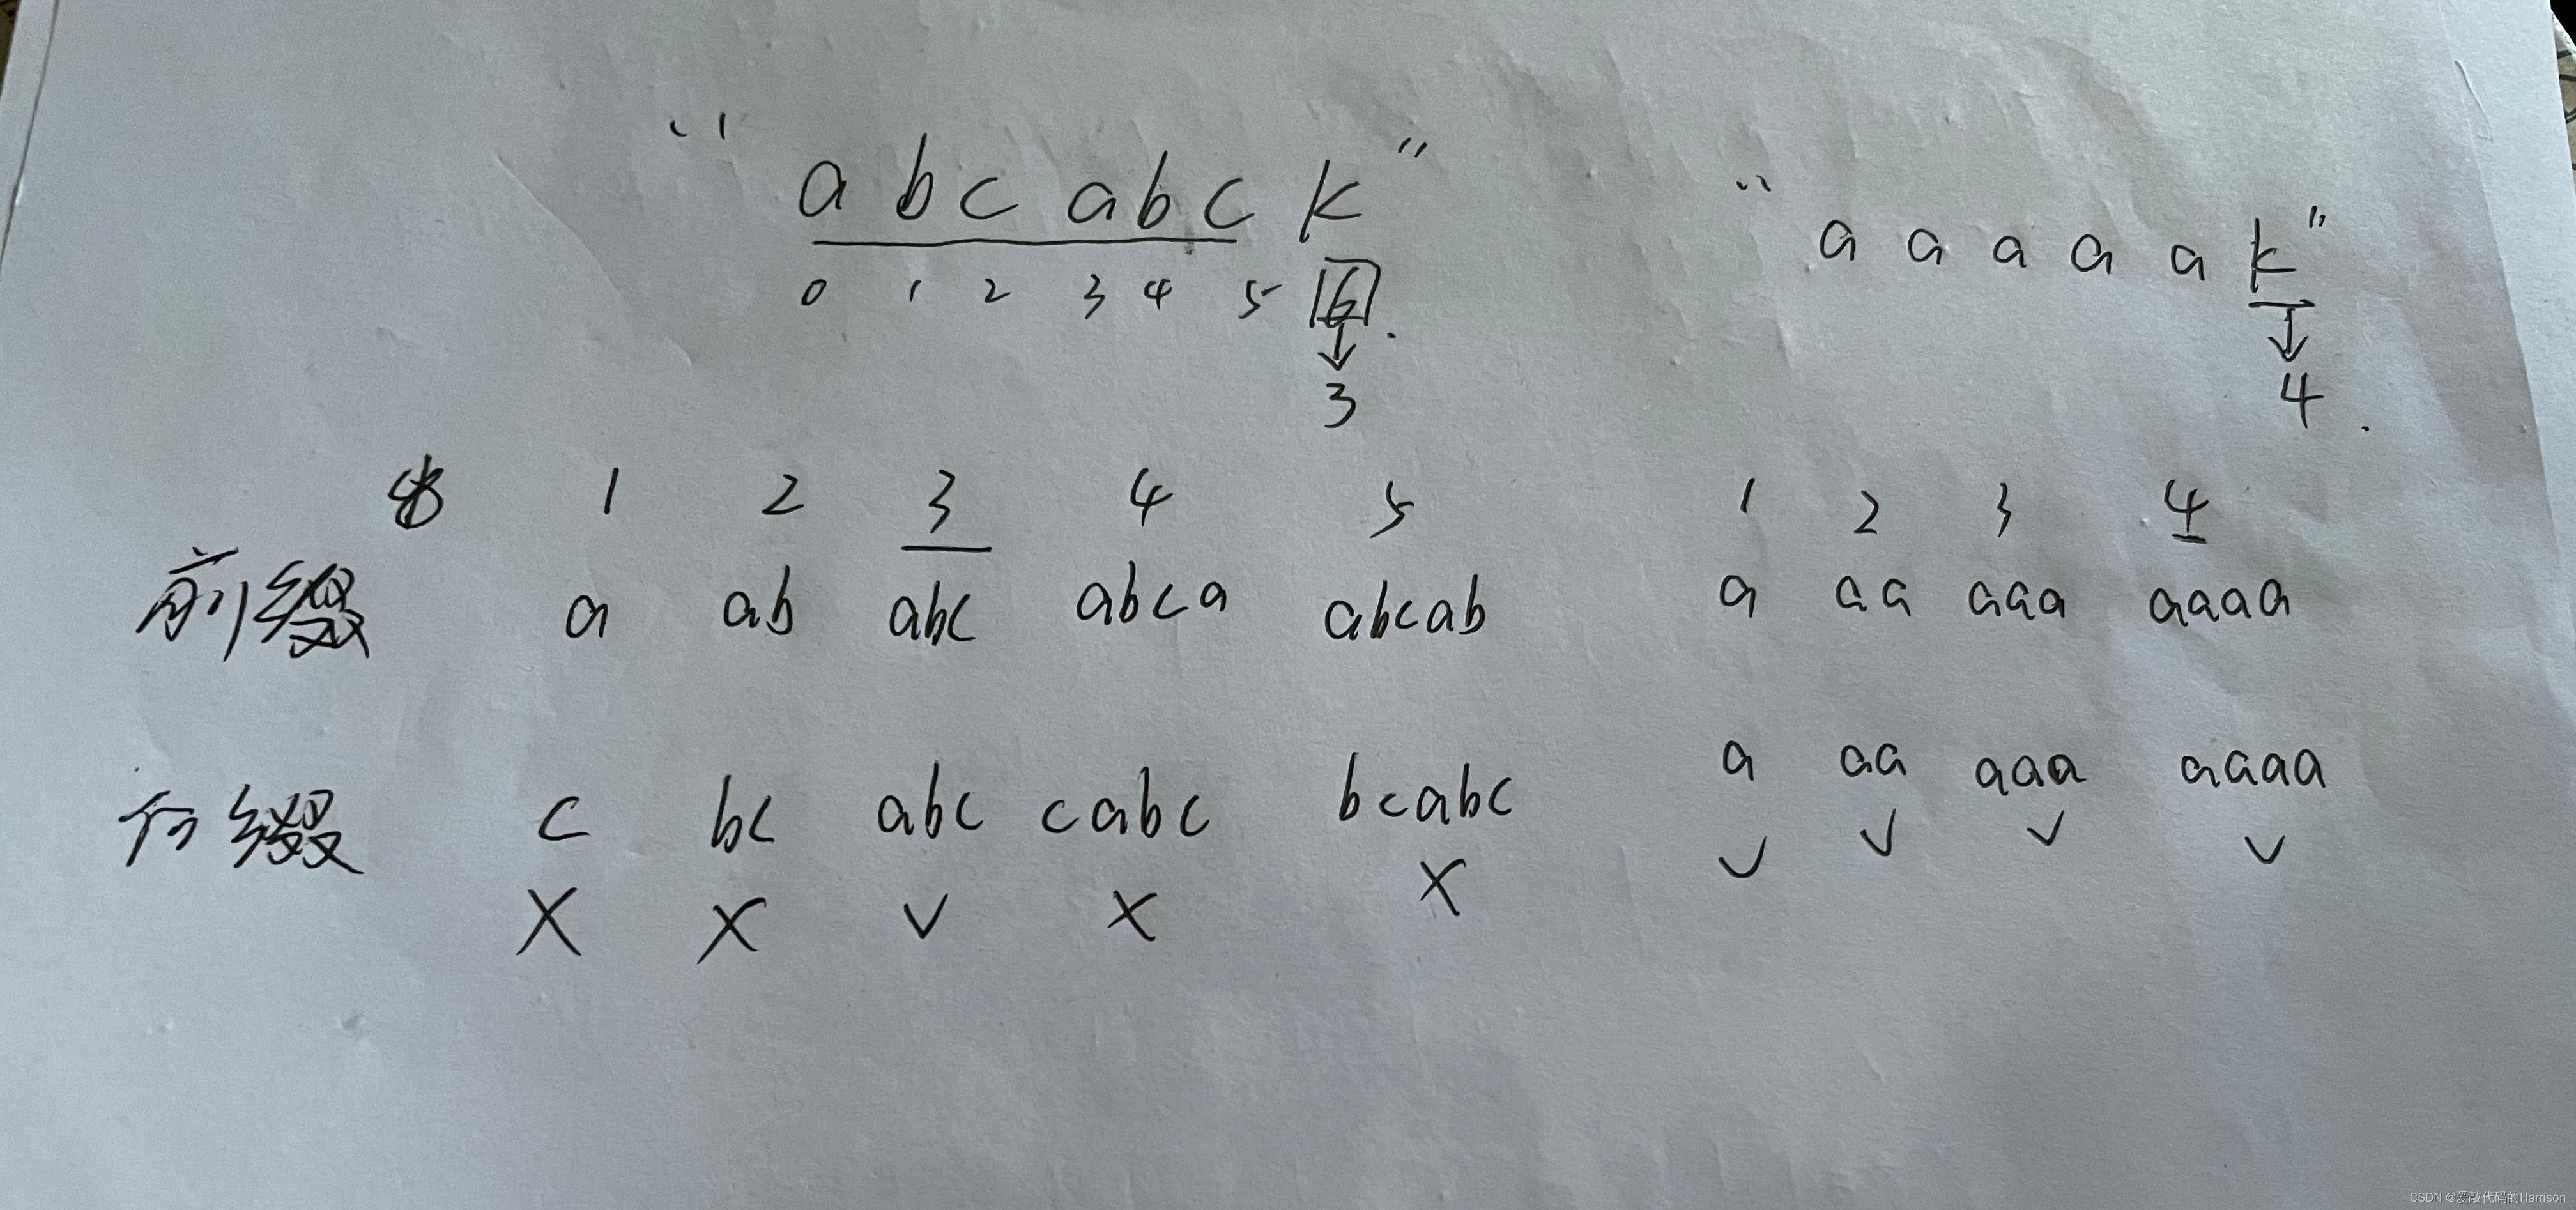 “abcabck” “aaaaak”
0 1 2 3 4 5 6
3 4
1 2 3 4 5 1 2 3 4
前缀 a ab abc abca abcab a aa aaa aaaa
后缀 c bc abc cabc bcabc a aa aaa aaaa
X X √ X X √ √ √ √
CSDN @爱敲代码的Harrison